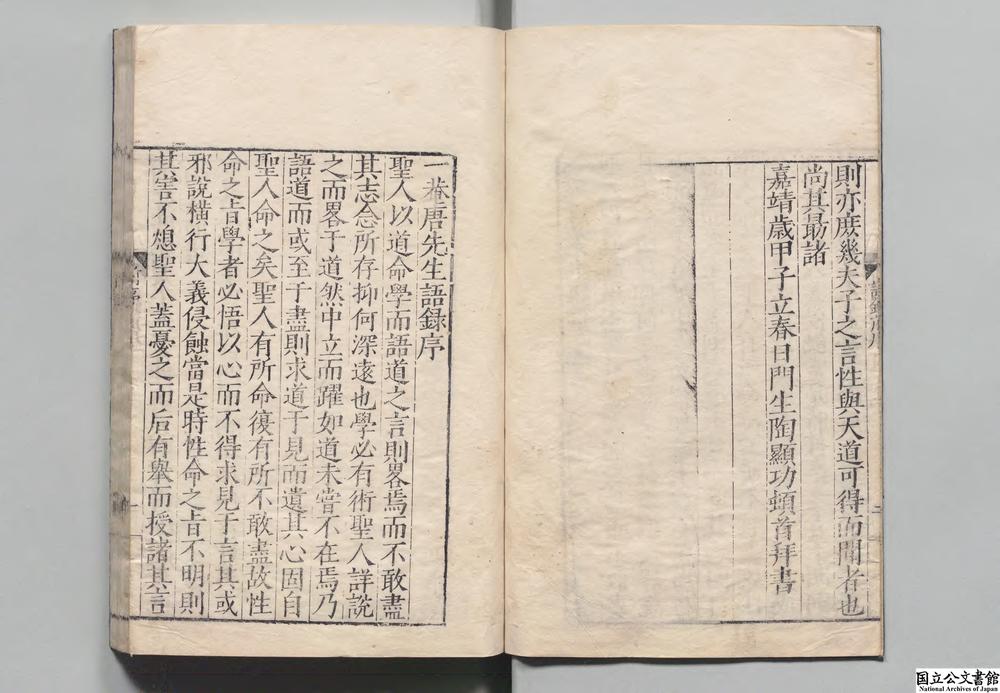 則亦庶幾夫子之言性與天道可得而聞者也
尚其勗諸
嘉靖歲甲子立春日門生陶顯功頓首拜書
一菴唐先生語録序
聖人以道命學而語道之言則畧焉而不敢盡
其志念所存抑何深遠也學必有術聖人詳說
之而畧于道然中立而躍如道未嘗不在焉乃
語道而或至于盡則求道于見而遺其心固自
聖人命之矣聖人有所命復有所不敢盡故性
命之旨學者必悟以心而不得求見于言其或
邪說橫行大義侵蝕當是時性命之旨不明則
其害不熄聖人蓋憂之而后有舉而授諸其言
国立公文書館
National Archives of Japan